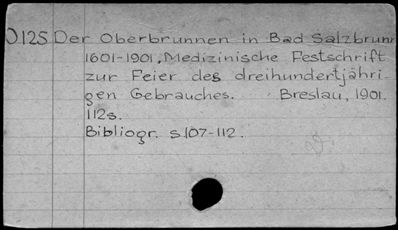 O125 Der Oberbrunnen in Bad Salzbrunn
1601-1901. Medizinische Festschrift
zur Feier des dreihundertjähri-
gen Gebrauches. Breslau, 1901.
112s.
Bibliogr. s107-112.